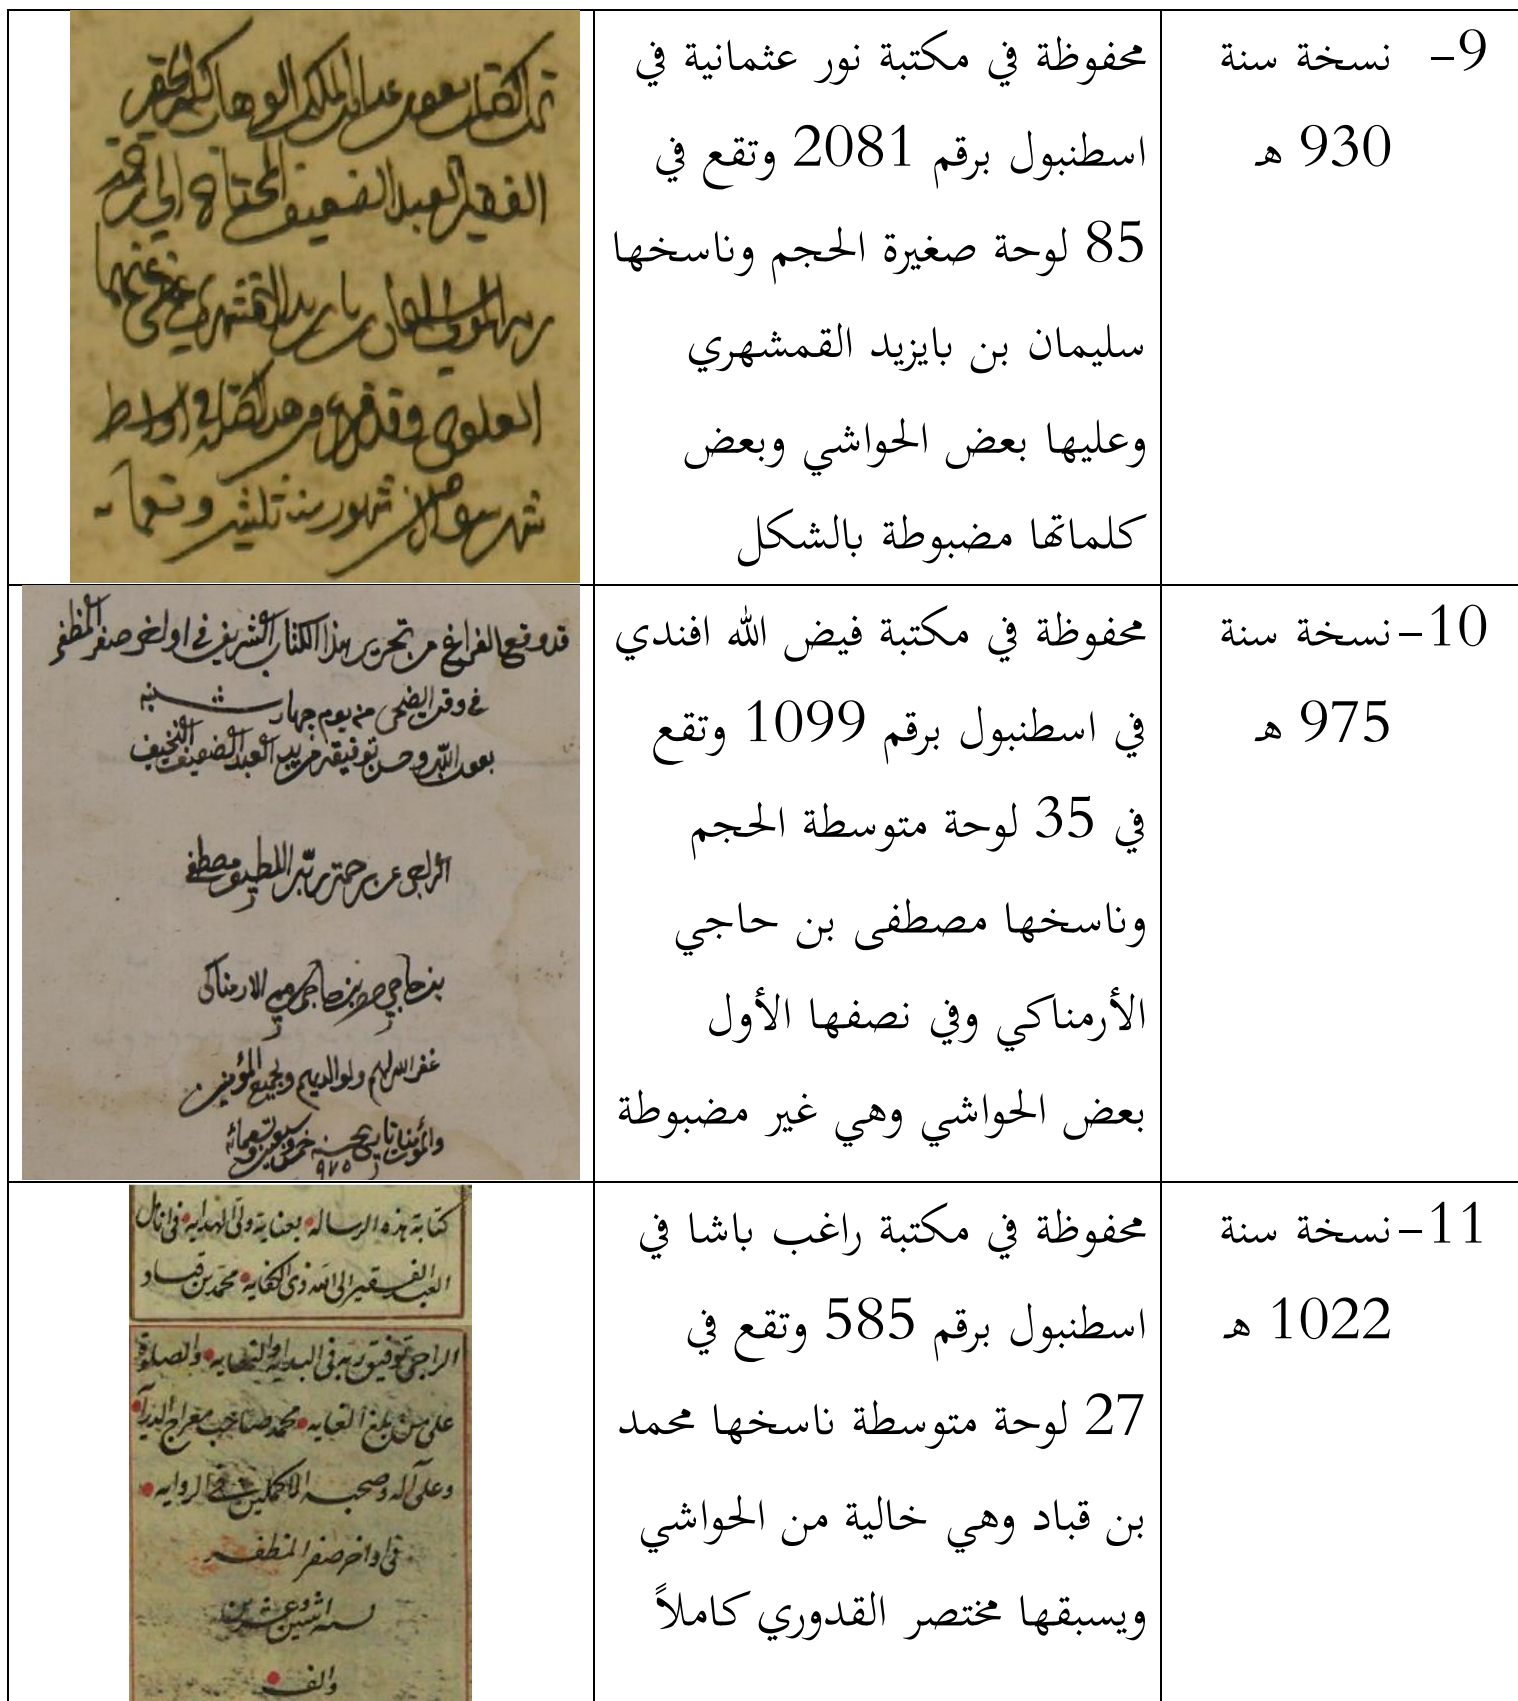 9- نسخة سنة
930 هـ
محفوظة في مكتبة نور عثمانية في
اسطنبول برقم 2081 وتقع في
85 لوحة صغيرة الحجم وناسخها
سليمان بن بايزيد القمشهري
وعليها بعض الحواشي وبعض
كلماتها مضبوطة بالشكل
تمت الكتاب بعون الملك الوهاب
الفقير العبد الضعيف المحتاج الى رحمة
ربه
العلوي وقد فرغ من هذا الكتاب في اواسط
شهر شهور سنة ثلثين وتسعمائه
10- نسخة سنة
975 هـ
محفوظة في مكتبة فيض الله افندي
في اسطنبول برقم 1099 وتقع
في 35 لوحة متوسطة الحجم
وناسخها مصطفى بن حاجي
الأرمناكي وفي نصفها الأول
بعض الحواشي وهي غير مضبوطة
قد وقع الفراغ من تحرير هذا الكتاب الشريف في اواخر صفر المظفر
في وقت الضحى من يوم چهار شنبه
بعون الله وحسن توفيقه من يد العبد الضعيف النحيف
الراجي عن رحمة ربه اللطيف مصطفى
بن حاجي بن حاجي الارمناكي
غفر الله لهم ولوالديهم ولجميع المؤمنين
والمؤمنات تاريخ سنه خمس وسبعين وتسعمائه
٩٧٥
11- نسخة سنة
1022 هـ
محفوظة في مكتبة راغب باشا في
اسطنبول برقم 585 وتقع في
27 لوحة متوسطة ناسخها محمد
بن قباد وهي خالية من الحواشي
ويسبقها مختصر القدوري كاملاً
كتابة هذه الرساله بعناية ولى الهدايه
العبد الفقير الى الله ذى الكفايه محمد بن قباد
الراجى توفيق ربه فى البدايه والنهايه والصلوة
على من بلغ الغايه محمد صاحب معراج
وعلى آله وصحبه الكاملين فى الروايه
فى اواخر صفر المظفر
لسنه اثنين وعشرين
والف